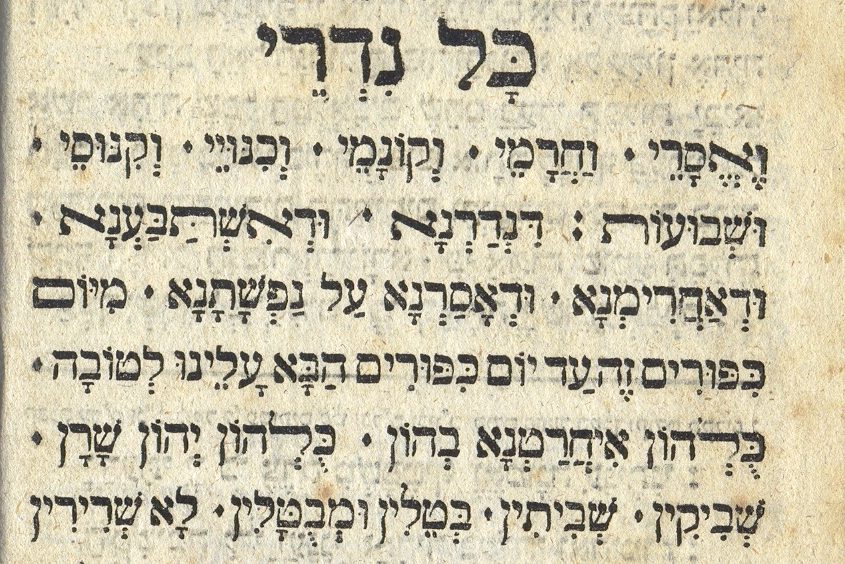 כָּל נִדְרֵי
וֶאֱסָרֵי · וַחֲרָמֵי · וְקוֹנָמֵי · וְכִנּוּיֵי · וְקִנּוּסֵי ·
וּשְׁבוּעוֹת : דִּנְדַרְנָא · וּדְאִשְׁתַּבַּעְנָא ·
וּדְאַחֲרִימְנָא · וּדְאָסַרְנָא עַל נַפְשָׁתָנָא · מִיּוֹם
כִּפּוּרִים זֶה עַד יוֹם כִּפּוּרִים הַבָּא עָלֵינוּ לְטוֹבָה ·
כֻּלְּהוֹן אִיחֲרַטְנָא בְהוֹן · כֻּלְּהוֹן יְהוֹן שָׁרָן ·
שְׁבִיקִין · שְׁבִיתִין · בְּטֵלִין וּמְבֻטָּלִין · לָא שְׁרִירִין